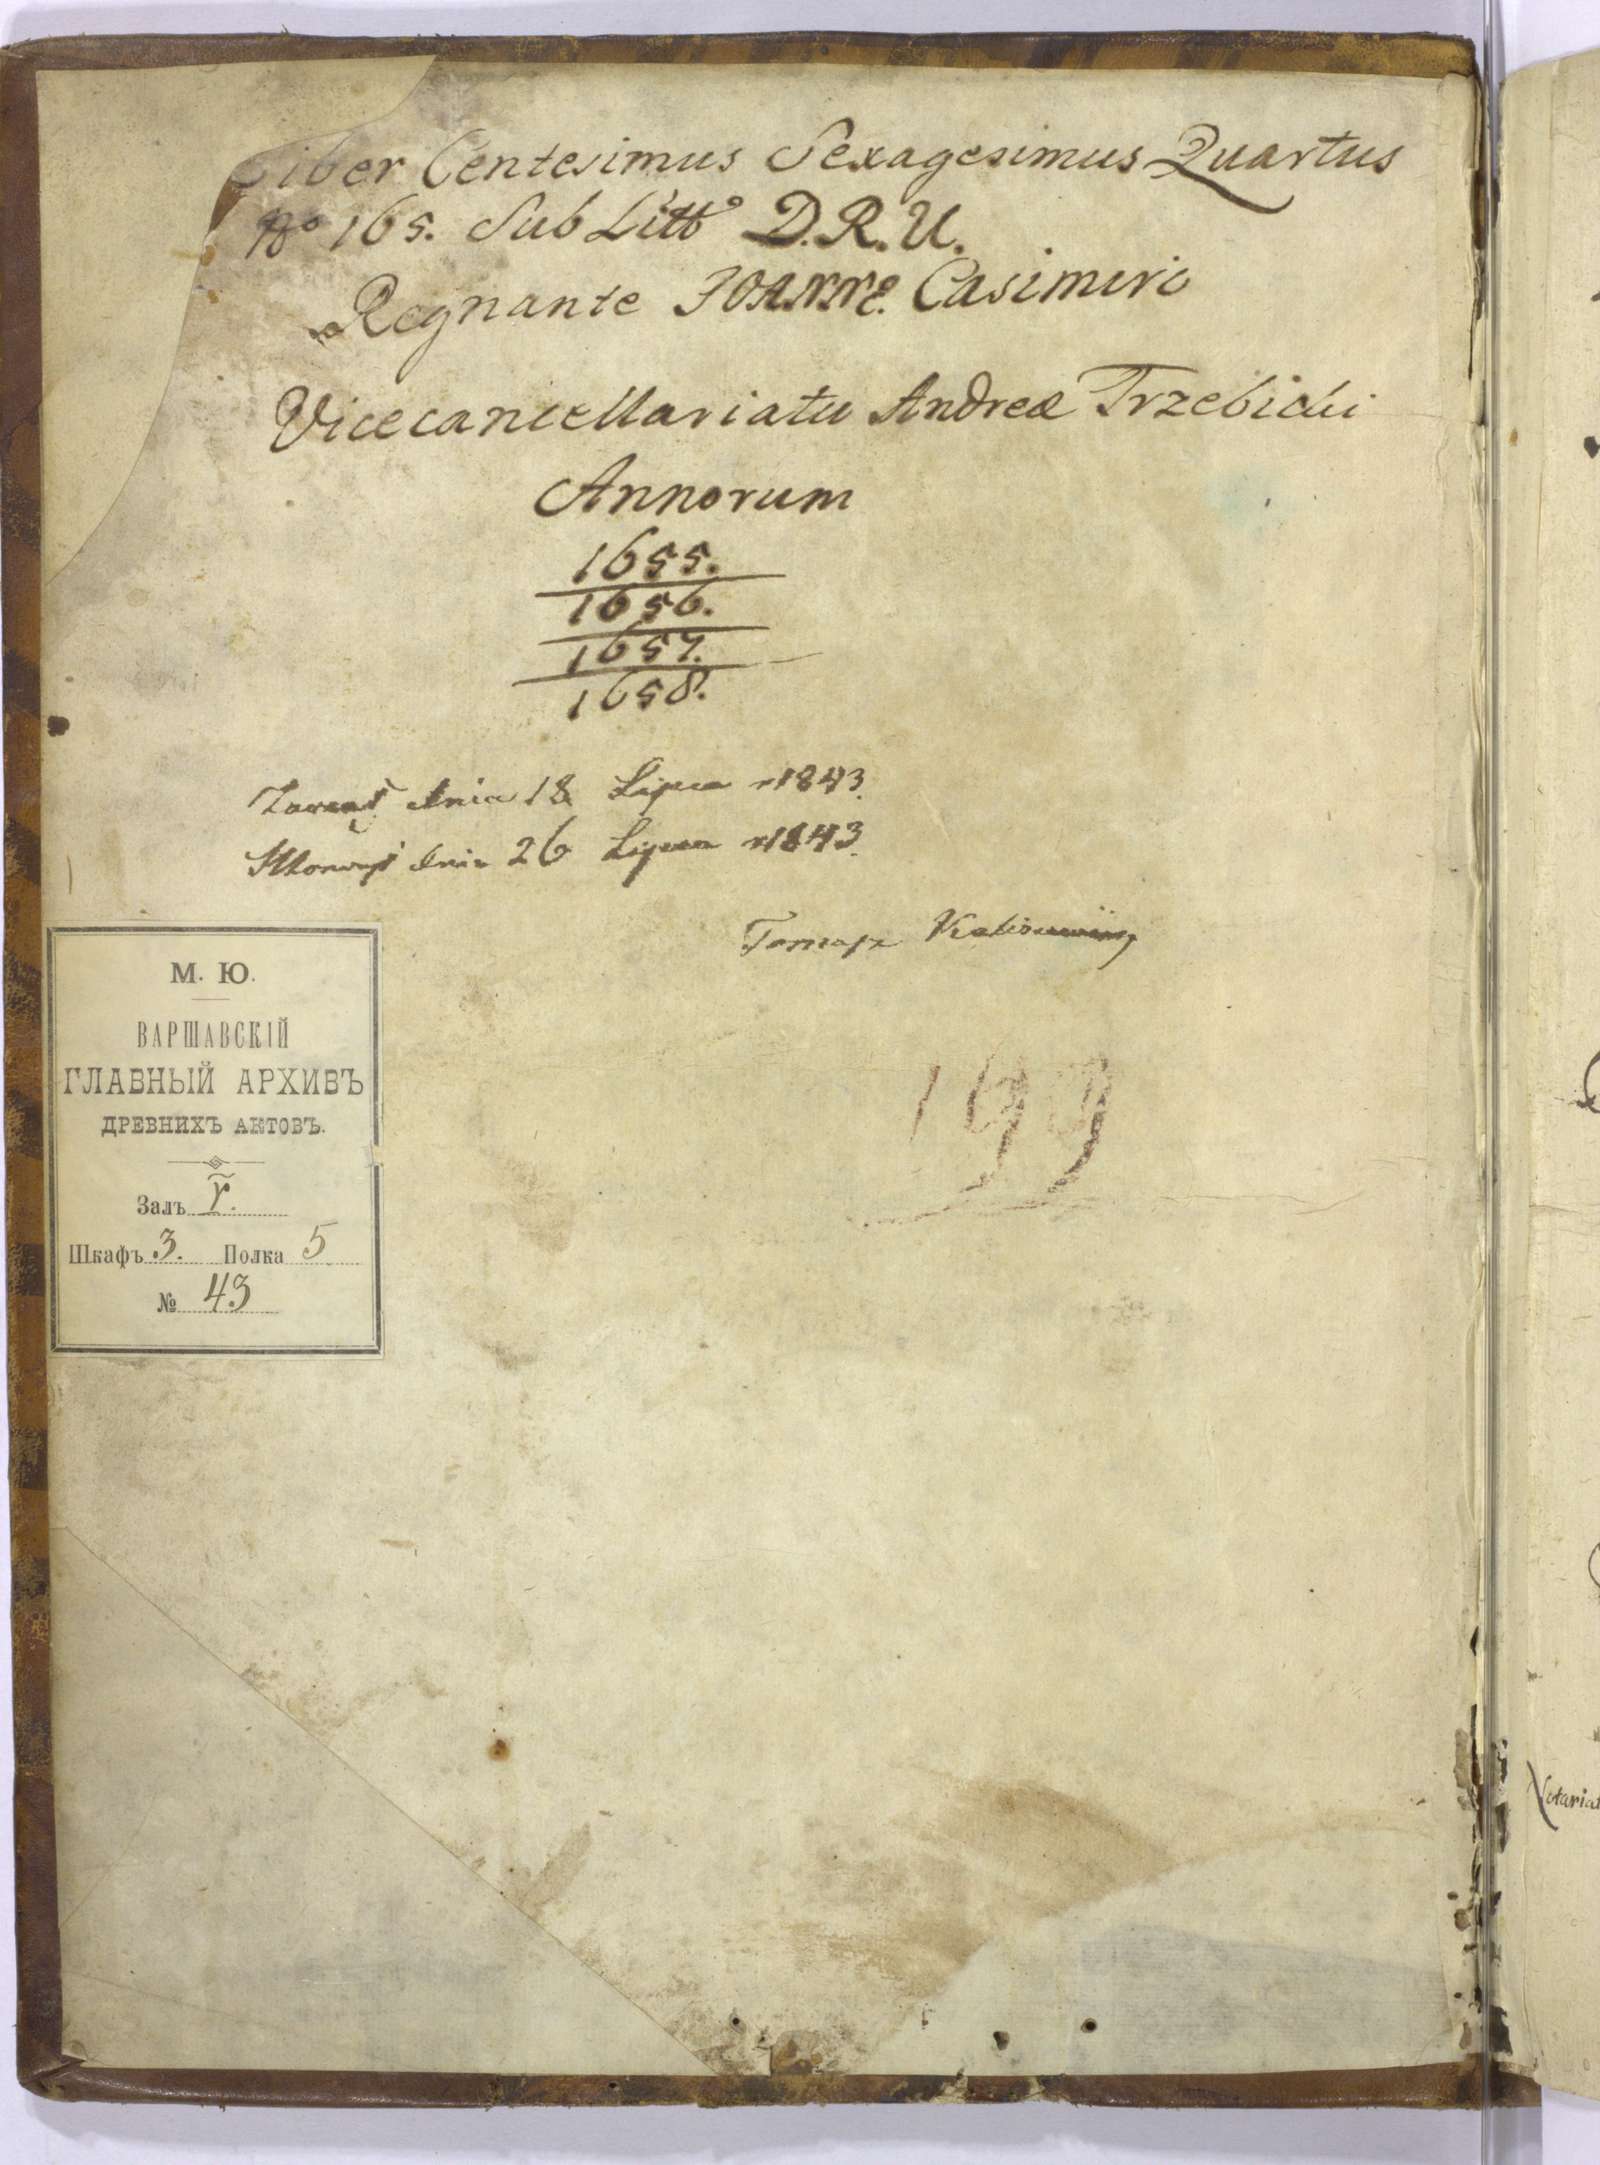 Liber Centesimus Sexagesimus Quartus
No 165. Sub Litt° D.R.U.
Regnante JOANNE. Casimiro
Vicecancellariatu Andreæ Trzebicki
Annorum
1655.
1656.
1657.
1658.
Zaczął dnia 18 Lipca r 1843.
Skończył dnia 26 Lipca r 1843.
Tomasz
М. Ю.
ВАРШАВСКІЙ
ГЛАВНЫЙ АРХИВЪ
ДРЕВНИХЪ АКТОВЪ.
Залъ
Шкафъ 3. Полка 5
№ 43
199